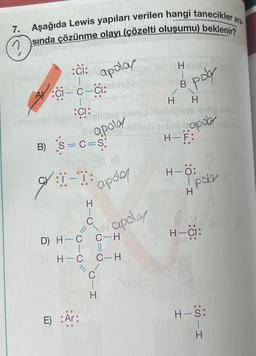 7. Aşağıda Lewis yapıları verilen hangi tanecikler ara-
sında çözünme olayı (çözelti oluşumu) beklenir?
?
:Cl: apolar H
A) :Cl – C – Cl: B polar
:Cl: H H
apolar apolar
B) S = C = S H – F:
C) :I – I: apolar H – O: polar
H
H
C apolar
D) H – C C – H H – Cl:
H – C C – H
C
H
E) :Ar: H – S:
H